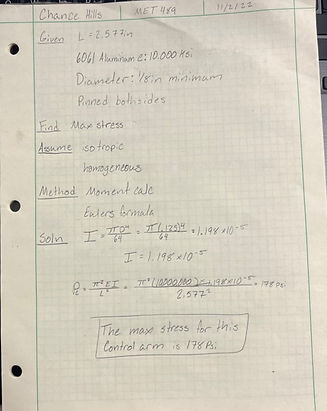 Chance Hills MET 489 11/2/22
Given L = 2.577in
6061 Aluminum e: 10,000 Ksi
Diameter: 1/8 in minimum
Pinned both sides
Find Max stress
Assume isotropic
homogeneous
Method Moment calc
Eulers formula
Soln I = πD⁴/64 = π(.125)⁴/64 = 1.198 x10⁻⁵
I = 1.198 x10⁻⁵
= π²EI/L² = π²(10000000) 1.198x10⁻⁵/2.577² = 178 psi
The max stress for this
control arm is 178 Psi